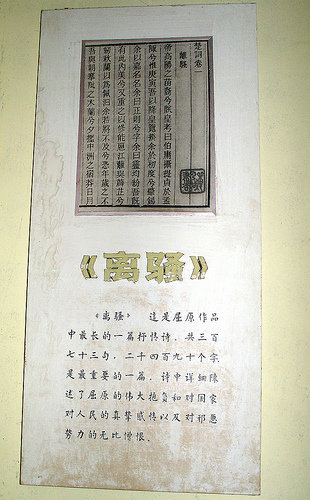 楚詞卷一
離騷
帝高陽之苗裔兮朕皇考曰伯庸攝提貞於孟
陬兮惟庚寅吾以降皇覽揆余於初度兮肇錫
余以嘉名名余曰正則兮字余曰靈均紛吾既
有此內美兮又重之以修能扈江離與辟芷兮
紉秋蘭以爲佩汨余若將不及兮恐年歲之不
吾與朝搴阰之木蘭兮夕攬中洲之宿莽日月
《离骚》
《离骚》 这是屈原作品
中最长的一篇抒情诗，共三百
七十三句，二千四百九十个字
是最重要的一诗，详细陈
述了屈原的伟大抱负和对国家
对人民的真挚感情以及对邪恶
势力的无比憎恨。